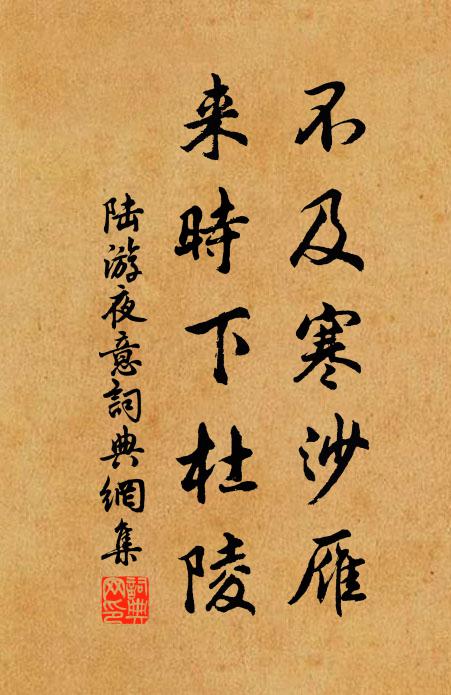 不及寒沙雁
来時下杜陵
陆游夜意詞典網集
詞典
网印